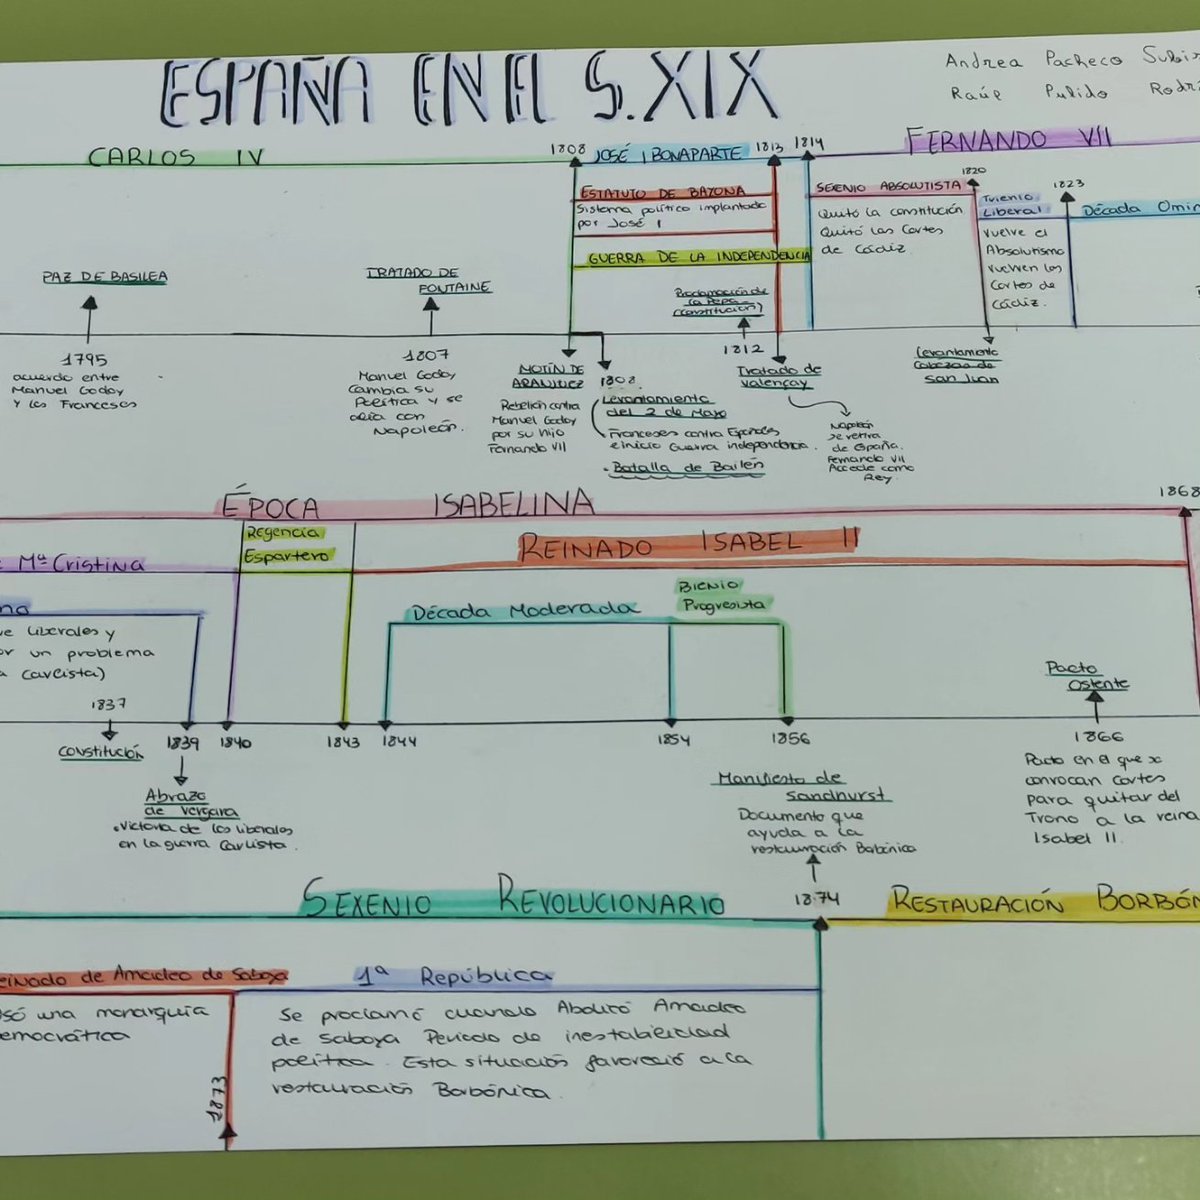 ESPAÑA EN EL S.XIX
Andrea Pacheco
Raúl Pulido
CARLOS IV
1808
JOSÉ I BONAPARTE
1813
1814
FERNANDO VII
ESTATUTO DE BAYONA
Sistema político implantado
por José I
GUERRA DE LA INDEPENDENCIA
SEXENIO ABSOLUTISTA
1820
Quitó la constitución
Quitó las Cortes
de Cádiz.
Trienio
Liberal
1823
Década
vuelve el
Absolutismo
vuelven las
Cortes de
Cádiz.
PAZ DE BASILEA
1795
acuerdo entre
Manuel Godoy
y los Franceses
TRATADO DE
FONTAINE
1807
Manuel Godoy
Cambia su
Política y se
alía con
Napoleón.
MOTÍN DE
ARANJUEZ
Rebelión contra
Manuel Godoy
por su hijo
Fernando VII
1808
Levantamiento
del 2 de Mayo
Franceses contra Españoles
e inicio Guerra independencia.
Batalla de Bailén
Proclamación de
la Pepa
(constitución)
1812
Tratado de
Valençay
Napoleón
se retira
de España.
Fernando VII
Accede como
Rey.
Levantamiento
Cabezas de
San Juan
ÉPOCA ISABELINA
1868
Mª Cristina
Regencia
Espartero
REINADO ISABEL II
Década Moderada
Bienio
Progresista
liberales y
un problema
carlista)
1837
Constitución
1839
Abrazo
de Vergara
Victoria de los liberales
en la guerra Carlista.
1840
1843
1844
1854
1856
Pacto
Ostente
1866
Pacto en el que se
convocan cortes
para quitar del
Trono a la reina
Isabel II.
Manifiesto de
Sandhurst
Documento que
ayuda a la
restauración Borbónica
1874
SEXENIO REVOLUCIONARIO
RESTAURACIÓN
de Amadeo de Saboya
una monarquía
1873
1ª República
Se proclamó cuando Abdicó Amadeo
de Saboya Periodo de inestabilidad
política. Esta situación favoreció a la
restauración Borbónica.